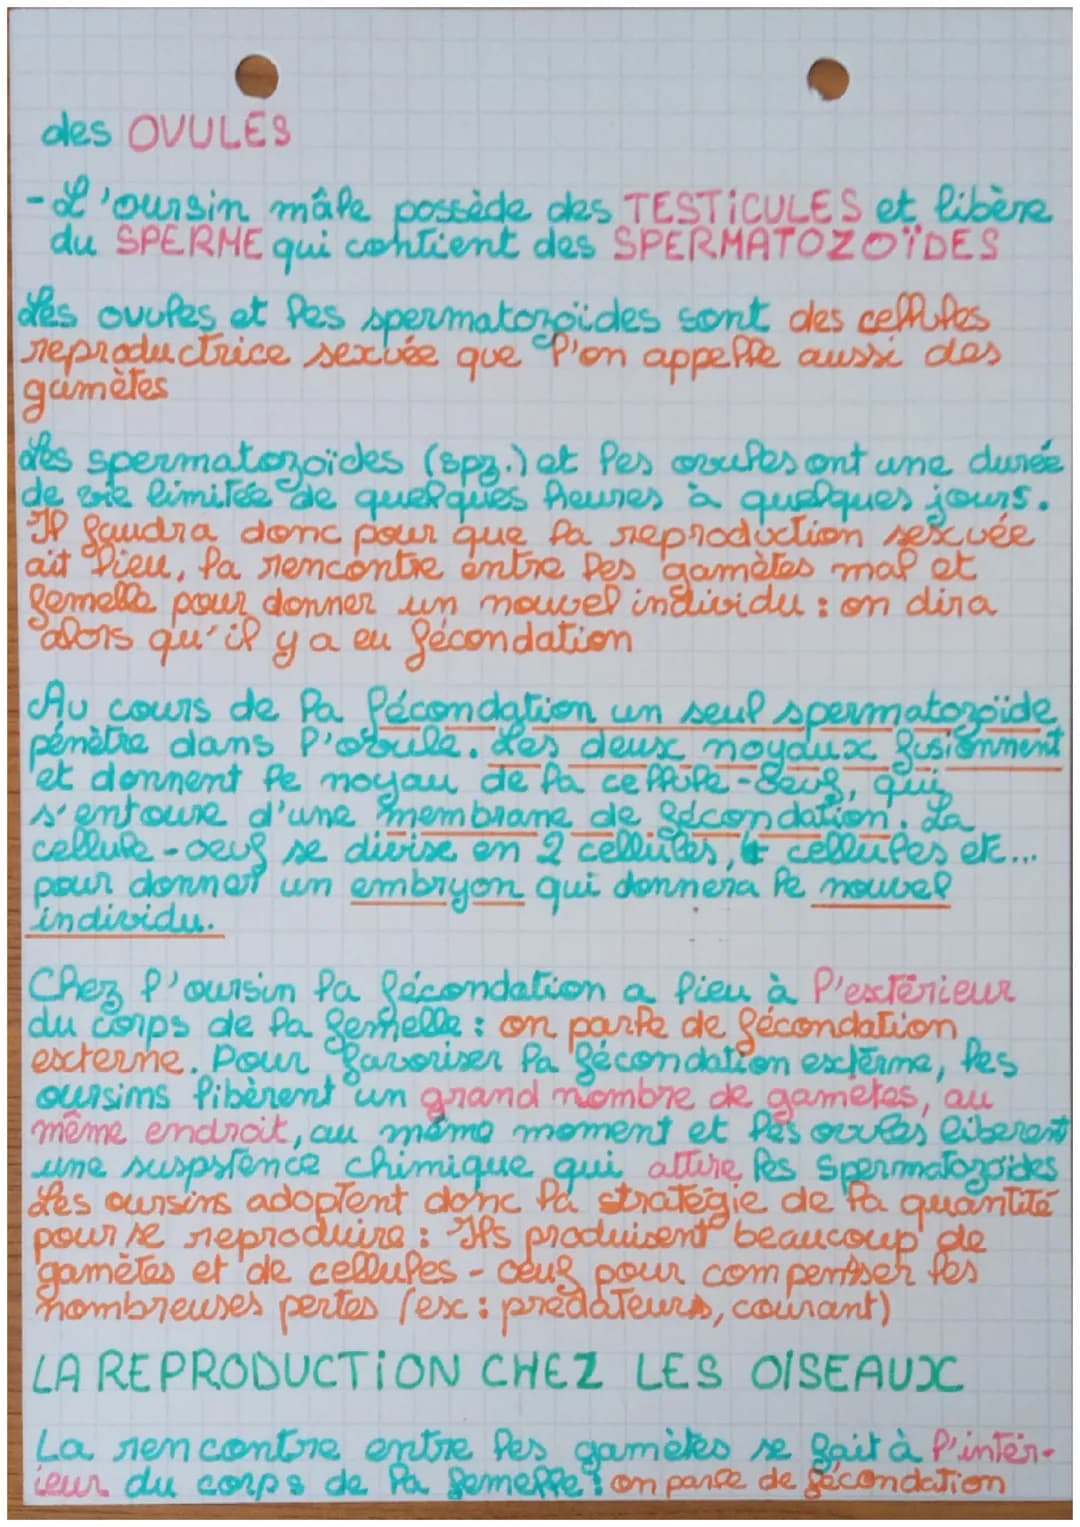 des OVULES
- L'oursin mâle possède des TESTICULES et libère
du SPERME qui contient des SPERMATOZOÏDES
Les ovules et les spermatozoïdes sont des cellules
reproductrice sexuée que l'on appelle aussi des
gamètes
Les spermatozoïdes (spz.) et les ovules ont une durée
de vie limitée de quelques heures à quelques jours.
Il faudra donc pour que la reproduction sexuée
ait lieu, la rencontre entre les gamètes mal et
femelle pour donner un nouvel individu : on dira
alors qu'il y a eu fécondation
Au cours de la fécondation un seul spermatozoïde
pénètre dans l'ovule. Les deux noyaux fusionnent
et donnent le noyau de la cellule-oeuf, qui
s'entoure d'une membrane de fécondation. La
cellule-oeuf se divise en 2 cellules, 4 cellules etc...
pour donner un embryon qui donnera le nouvel
individu.
Chez l'oursin la fécondation a lieu à l'extérieur
du corps de la femelle : on parle de fécondation
externe. Pour favoriser la fécondation externe, les
oursins libèrent un grand nombre de gametes, au
même endroit, au même moment et les ovules liberent
une suspstence chimique qui attire les spermatozoïdes
Les oursins adoptent donc la stratégie de la quantité
pour se reproduire : Ils produisent beaucoup de
gamètes et de cellules-oeuf pour compenser les
nombreuses pertes (ex : prédateurs, courant)
LA REPRODUCTION CHEZ LES OISEAUX
La rencontre entre les gamètes se fait à l'intér-
ieur du corps de la femelle : on parle de fécondation